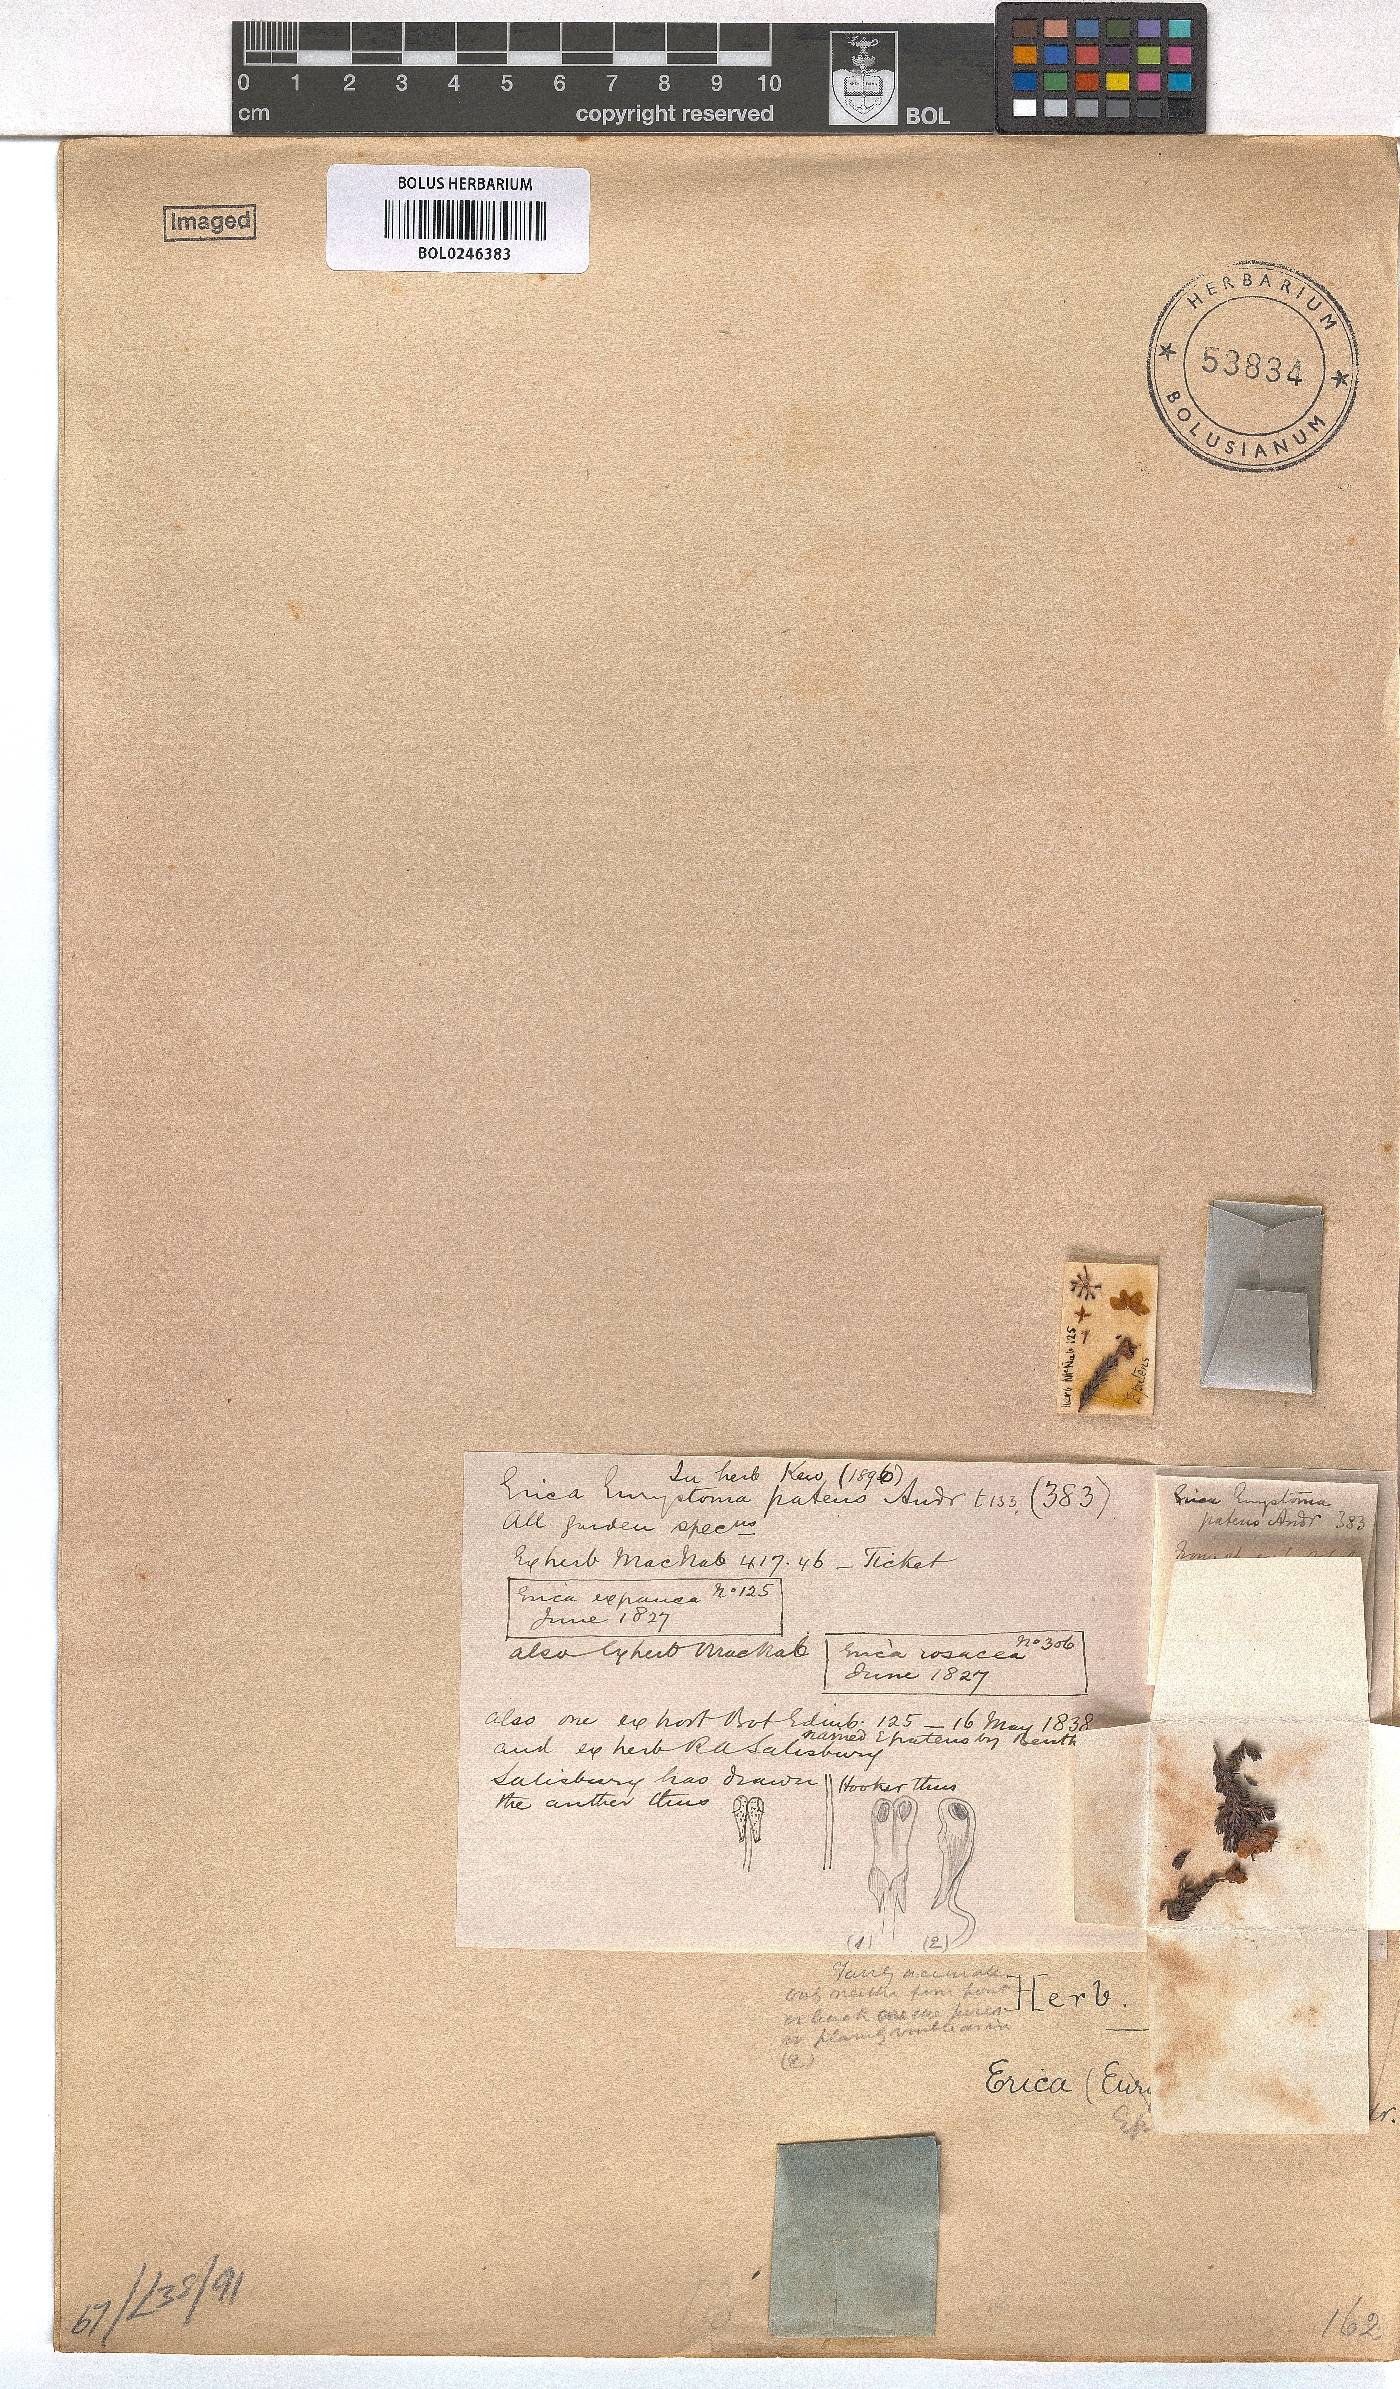 0 1 2 3 4 5 6 7 8 9 10
cm copyright reserved BOL
BOLUS HERBARIUM
BOL0246383
Imaged
HERBARIUM
53834
BOLUSIANUM
Herb McNab 125
E patens
In herb Kew (1896)
Erica Eurystoma patens Andr t 133. (383)
All garden specns
Ex herb MacNab 417.46 – Ticket
Erica expansa No 125
June 1827
also Ex herb MacNab
Erica rosacea No 306
June 1827
also one ex hort Bot Edinb. 125 – 16 May 1838
named E patens by Benth
and ex herb R A Salisbury
Salisbury has drawn
the anther thus
Hooker thus
(1) (2)
Fairly accurate
only neither from front
or back
(2)
Erica Eurystoma
patens Andr 383
Herb.
Erica (Eury
dr.
67/L38/91
162